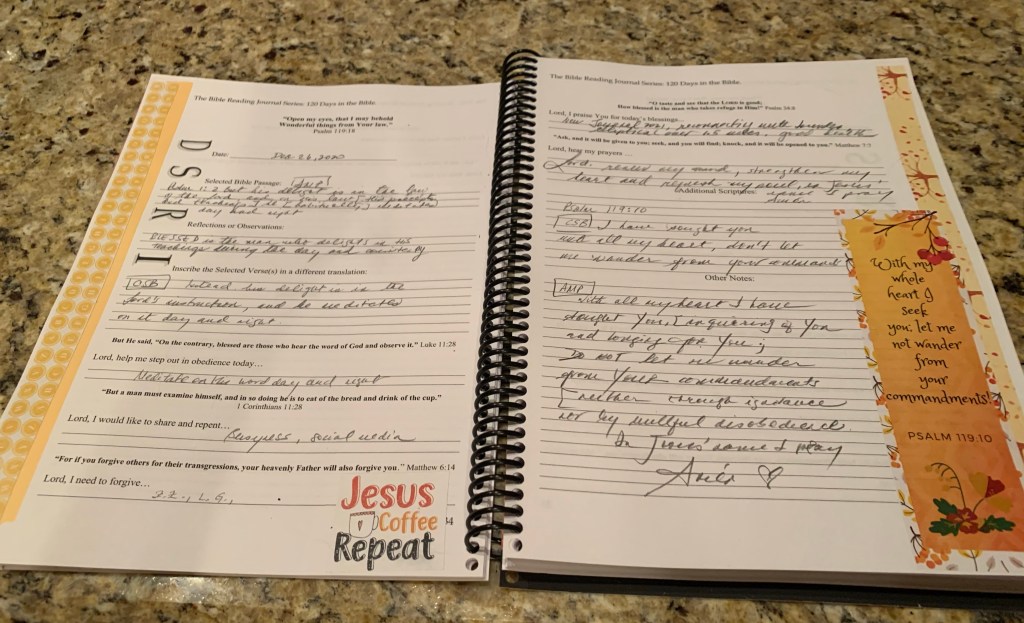 The Bible Reading Journal Series: 120 Days in the Bible.
"Open my eyes, that I may behold
Wonderful things from Your law."
Psalm 119:18
Date
D
S
K
I
Selected Bible Passage: AMP
1:2 But his delight is in the
day and night
Reflections or Observations:
BLESSED is the man who delights in his
teachings during the day and
Inscribe the Selected Verse(s) in a different translation:
Instead his delight is in the
Lord's instruction, and he meditates
on it day and night.
But He said, "On the contrary, blessed are those who hear the word of God and observe it." Luke 11:28
Lord, help me step out in obedience today…
Meditate on the word day and night
"But a man must examine himself, and in so doing he is to eat of the bread and drink of the cup."
1 Corinthians 11:28
Lord, I would like to share and repent…
social media
"For if you forgive others for their transgressions, your heavenly Father will also forgive you." Matthew 6:14
Lord, I need to forgive…
Jesus
Coffee
Repeat
The Bible Reading Journal Series: 120 Days in the Bible.
"O taste and see that the LORD is good;
How blessed is the man who takes refuge in Him!" Psalm 34:8
Lord, I praise You for today's blessings…
"Ask, and it will be given to you; seek, and you will find; knock, and it will be opened to you." Matthew 7:7
Lord, hear my prayers…
Lord, renew my mind, strengthen my
heart and refresh my soul, in Jesus'
name I pray
Additional Scriptures:
Psalm 119:10
CSB I have sought you
with all my heart, don't let
me wander from your commands
Other Notes:
AMP
With all my heart I have
sought You, [inquiring of You
and longing for You];
Do not let me wander
from Your commandments
[neither through ignorance
nor by willful disobedience.
In Jesus' name I pray
With my
whole
heart I
seek
you; let me
not wander
from
your
commandments!
PSALM 119:10